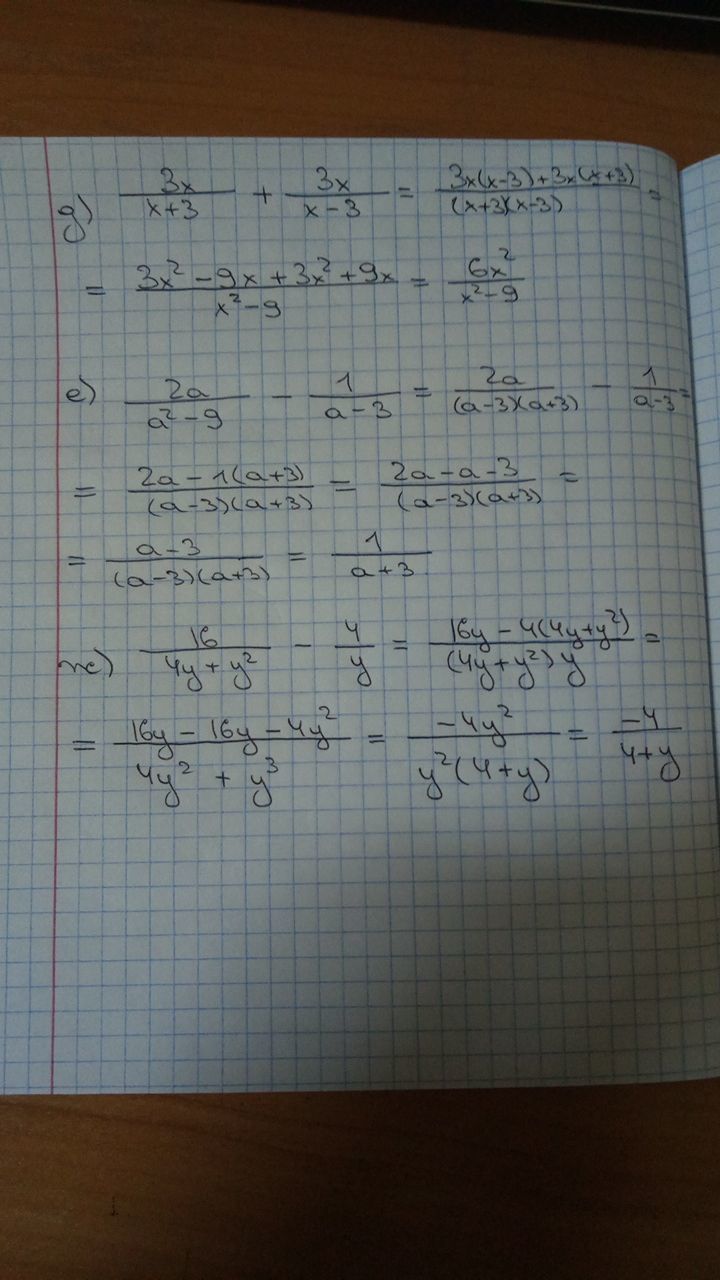 д) 3x/(x+3) + 3x/(x-3) = (3x(x-3)+3x(x+3))/((x+3)(x-3)) =
= (3x² - 9x + 3x² + 9x)/(x² - 9) = 6x²/(x² - 9)
е) 2a/(a² - 9) - 1/(a - 3) = 2a/((a-3)(a+3)) - 1/(a-3) =
= (2a - 1(a+3))/((a-3)(a+3)) = (2a - a - 3)/((a-3)(a+3)) =
= (a-3)/((a-3)(a+3)) = 1/(a+3)
ж) 16/(4y + y²) - 4/y = (16y - 4(4y+y²))/((4y+y²)y) =
= (16y - 16y - 4y²)/(4y² + y³) = -4y²/(y²(4+y)) = -4/(4+y)